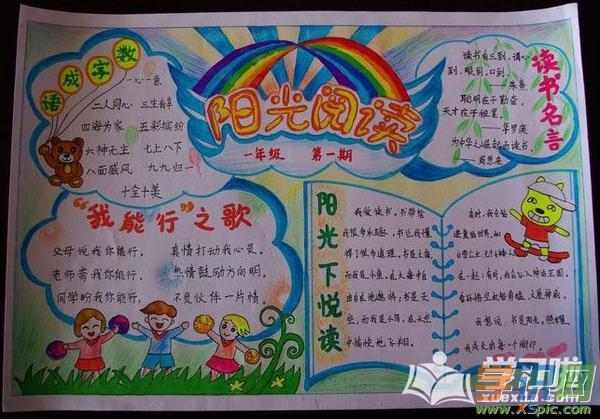 数字成语
一心一意
二人同心 三生有幸
四海为家 五彩缤纷
六神无主 七上八下
八面威风 九九归一
十全十美
阳光阅读
一年级 第一期
读书名言
读书有三到,谓心
到,眼到,口到。
——朱熹
聪明在于勤奋,
天才在于积累。
——华罗庚
为中华之崛起而读书。
——周恩来
“我能行”之歌
父母说我你能行, 真情打动我心灵。
老师看我你能行, 热情鼓励方向明。
同学盼我你能行, 不负伙伴一片情。
阳光下悦读
我爱读书,书带给
我很多乐趣,书让我懂
得了很多道理。书是大海,
而我是小鱼,在大海中自
由自在地遨游;书是天
空,而我是小鸟,在天空
中愉快地飞翔。
有时,我乐
进童话世界,和
白雪公主、七个小矮人
在一起;有时,我会
我想说,书是阳光,照耀
我成长的每一个脚印
学习啦
www.xuexila.com
www.XSpic.com